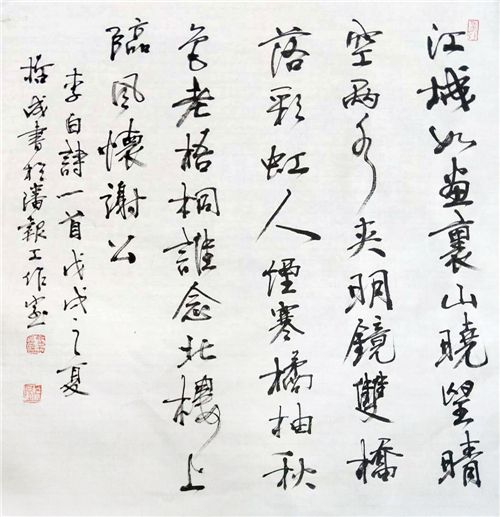 江城如畫裏山曉望晴
空兩水夾明鏡雙橋
落彩虹人煙寒橘柚秋
色老梧桐誰念北樓上
臨風懷謝公
李白詩一首戊戌之夏
哲成書於瀋報工作室